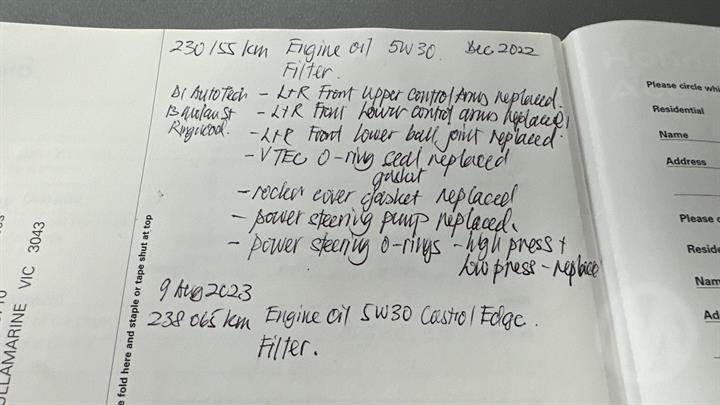 230155km Engine oil 5W30. Dec 2022
Filter.
Di AutoTech - L+R Front Upper Control Arms replaced.
- L+R Front Lower control arms replaced
Ringwood. - L+R Front Lower ball joint replaced.
- VTEC O-ring seal replaced
gasket
- rocker cover gasket replaced
- power steering pump replaced.
- power steering O-rings - high press +
low press - replace
9 Aug 2023
238065km Engine oil 5W30 Castrol Edge.
Filter.
e fold here and staple or tape shut at top
LLAMARINE VIC 3043
Please circle whi
Residential
Name
Address
Please c
Reside
Nam
Ad